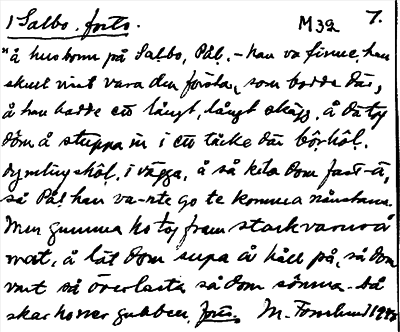 1 Salbo. forts. M39 7.
"å husbonn på Salbo, Pål, – han va finne, han
skull vint vara den första, som bodde där,
å han hadde ett långt, långt skägg, å då tog
döm å stuppa in i ett täcke där börhôl.
dymlingshôl, i vägga, å så kila dom fast-ä,
så Pål han va-nte go te komma nånstans.
Men gumma ho tog fram starkvaror å
mat, å lät dom supa å håll på, så dom
vart så överlasta så dom sömna. Då
skar ho ner gubben, forts. M. Forslund 19